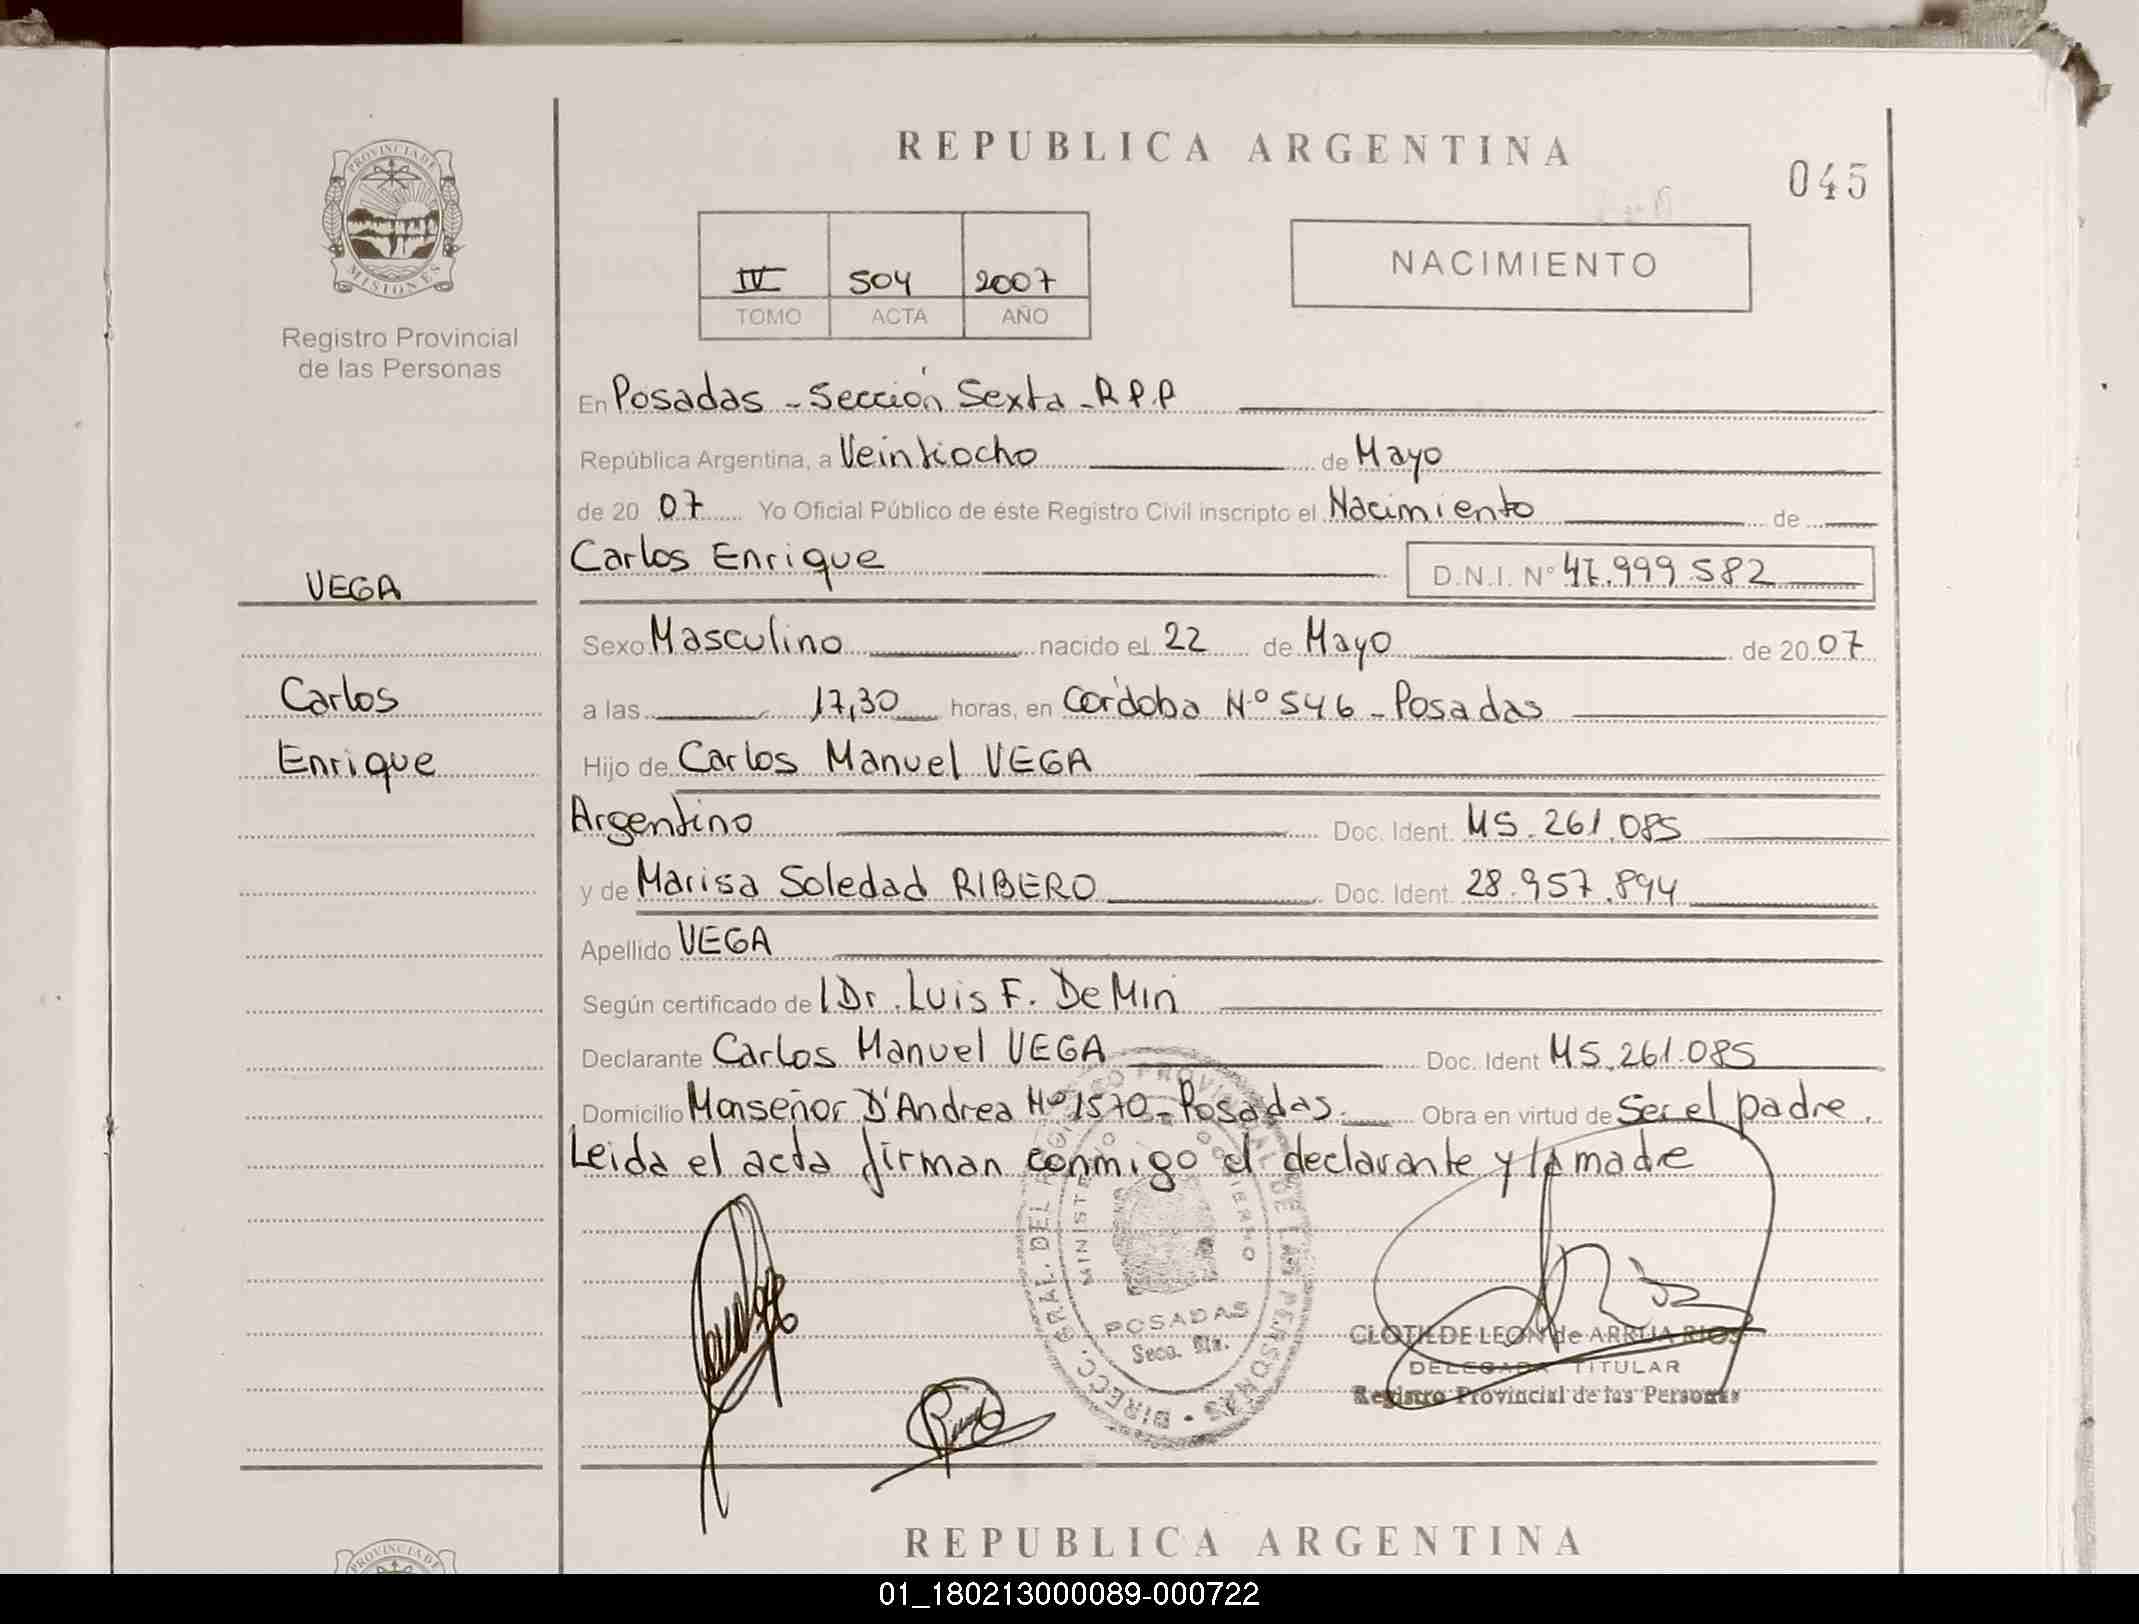 REPUBLICA ARGENTINA
045
PROVINCIA DE
MISIONES
Registro Provincial
de las Personas
IV 504 2007
TOMO ACTA AÑO
NACIMIENTO
En Posadas - Sección Sexta - R.P.P
República Argentina, a Veintiocho de Mayo
de 20 07 Yo Oficial Público de éste Registro Civil inscripto el Nacimiento de
Carlos Enrique D.N.I. Nº 47.999.582
VEGA
Sexo Masculino nacido el 22 de Mayo de 20 07
Carlos
a las 17,30 horas, en Córdoba Nº 546 - Posadas
Enrique
Hijo de Carlos Manuel VEGA
Argentino Doc. Ident. M5.261.085
y de Marisa Soledad RIBERO Doc. Ident. 28.957.894
Apellido VEGA
Según certificado de l Dr. Luis F. De Miri
Declarante Carlos Manuel VEGA Doc. Ident M5.261.085
Domicilio Monseñor D'Andrea Nº 1570 - Posadas. Obra en virtud de Ser el padre.
Leida el acta firman conmigo el declarante y la madre
DIRECC. GRAL. DEL REGISTRO PROVINCIAL DE LAS PERSONAS
MINISTERIO DE GOBIERNO
POSADAS
Secc. 6ta.
CLOTILDE LEON de ARRUA RIOS
DELEGADA TITULAR
Registro Provincial de las Personas
REPUBLICA ARGENTINA
PROVINCIA DE
01_180213000089-000722